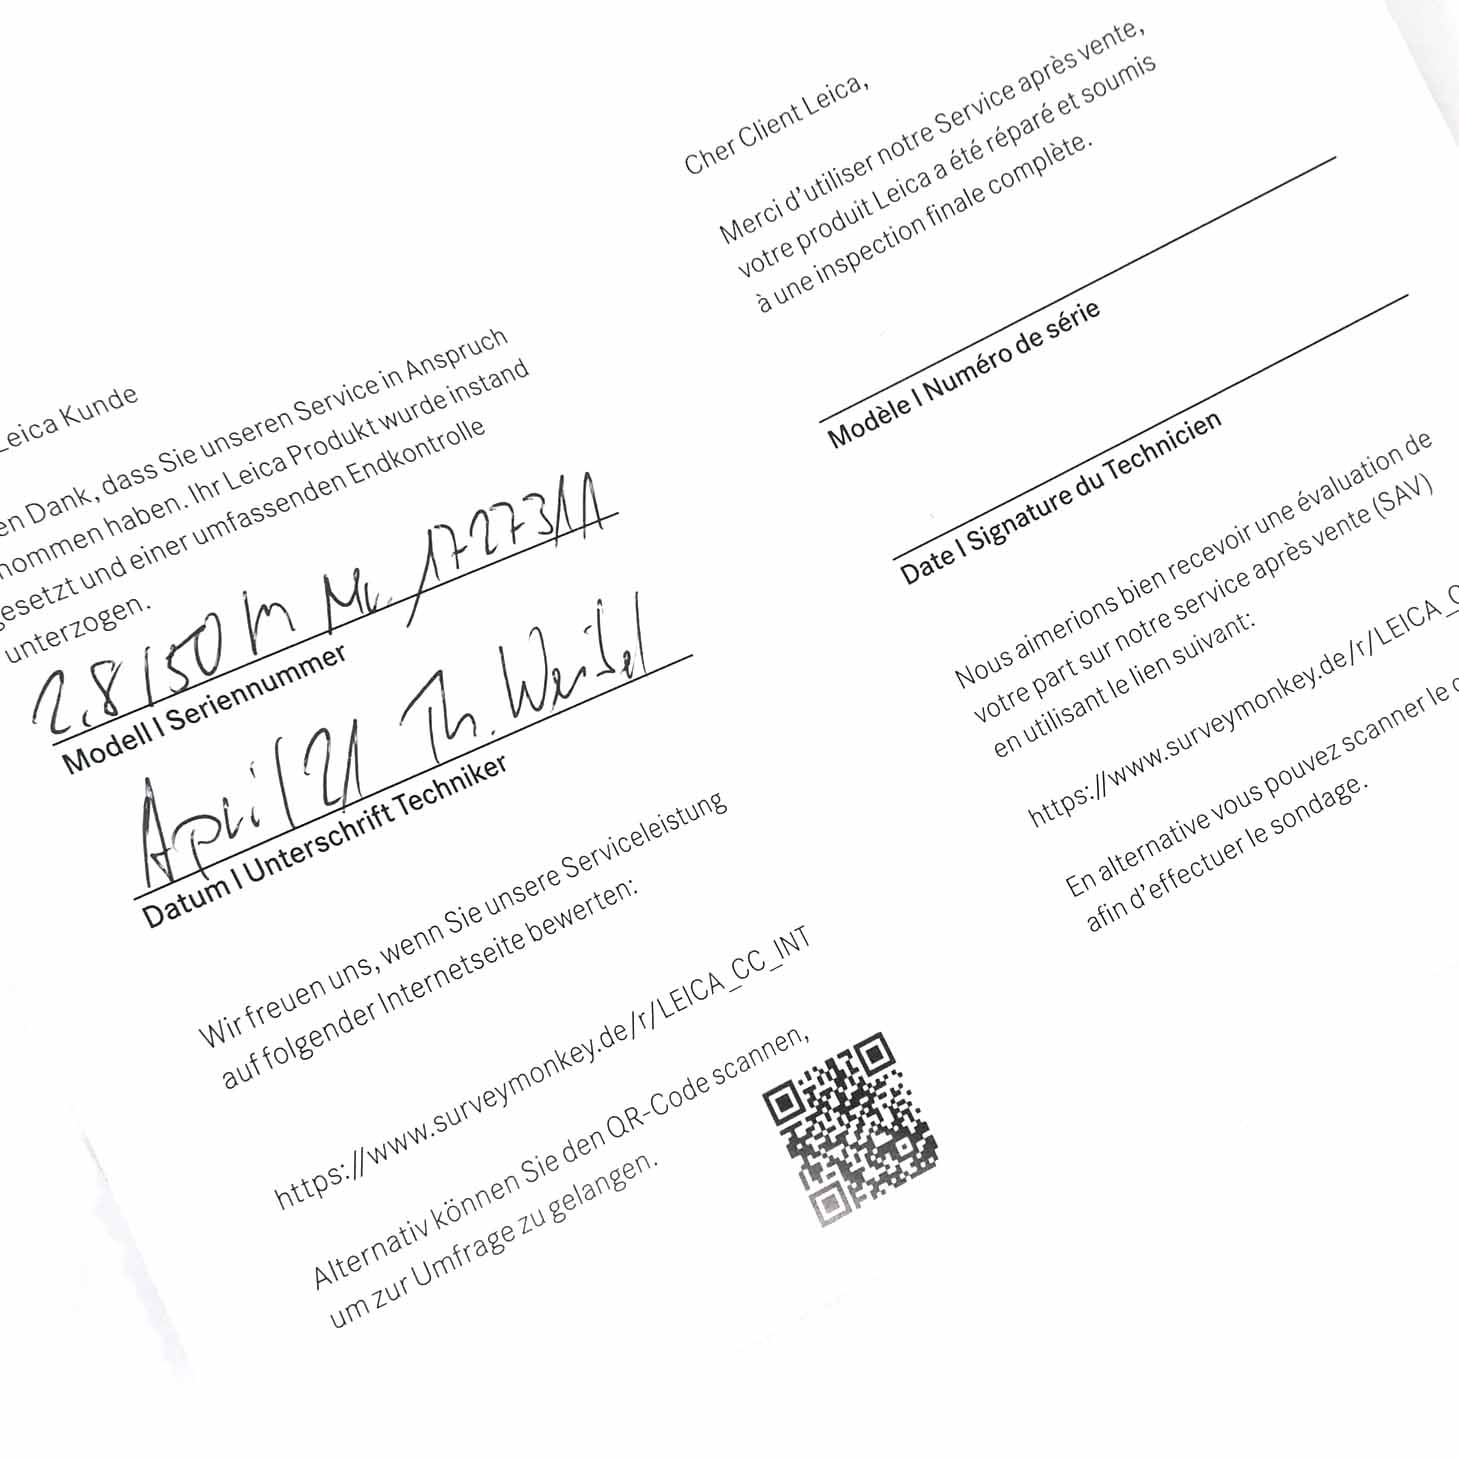 Leica Kunde
en Dank, dass Sie unseren Service in Anspruch
nommen haben. Ihr Leica Produkt wurde instand
gesetzt und einer umfassenden Endkontrolle
unterzogen.
2.8/50 m Nr. 1727311
Modell | Seriennummer
April 21 Th. Weibel
Datum | Unterschrift Techniker
Wir freuen uns, wenn Sie unsere Serviceleistung
auf folgender Internetseite bewerten:
https://www.surveymonkey.de/r/LEICA_CC_INT
Alternativ können Sie den QR-Code scannen,
um zur Umfrage zu gelangen.
Cher Client Leica,
Merci d'utiliser notre Service après vente,
votre produit Leica a été réparé et soumis
à une inspection finale complète.
Modèle | Numéro de série
Date | Signature du Technicien
Nous aimerions bien recevoir une évaluation de
votre part sur notre service après vente (SAV)
en utilisant le lien suivant:
https://www.surveymonkey.de/r/LEICA_C
En alternative vous pouvez scanner le c
afin d'effectuer le sondage.